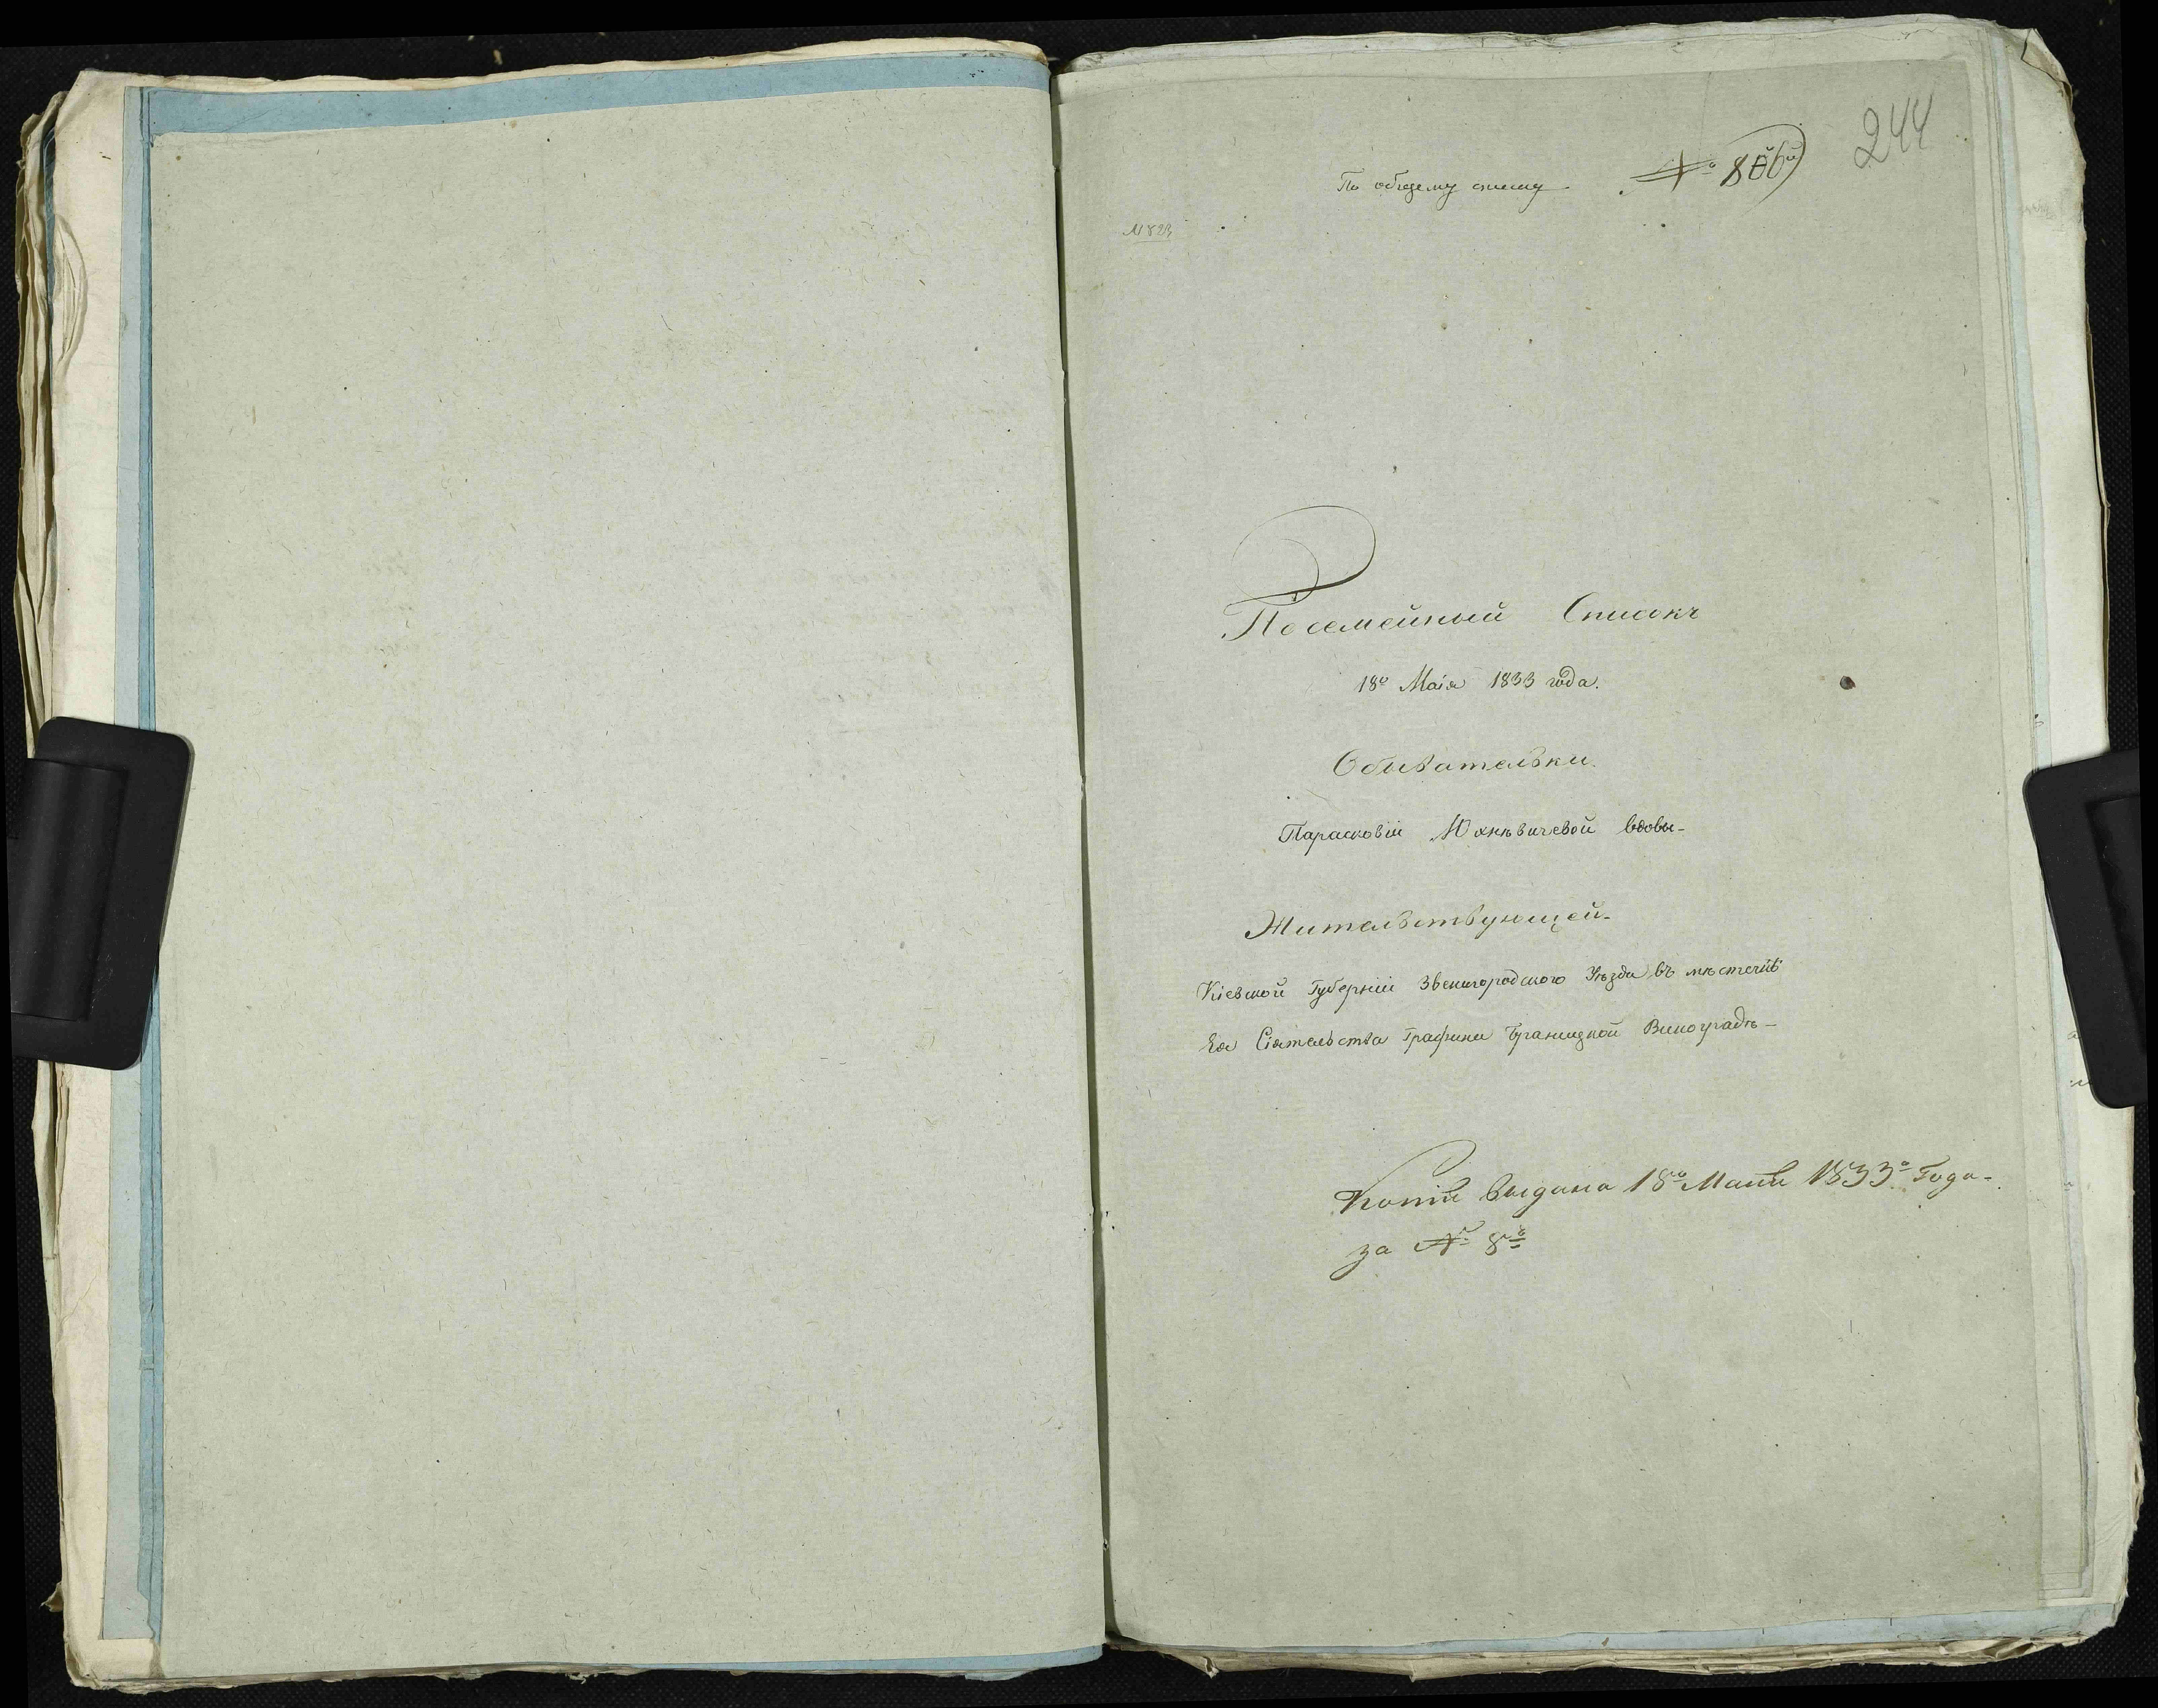 244
По общему списку № 806й
Посемейный Списокъ
18º Маія 1833 года.
Обывательки
Парасковіи Юхнѣвичевой вдовы
Жительствующей
Кіевской Губерніи Звенигородского Уѣзда въ мѣстечкѣ
Ея Сіятельства Графини Браницкой Виноградѣ
Копія выдана 18го Маія 1833º Года
за № 8º